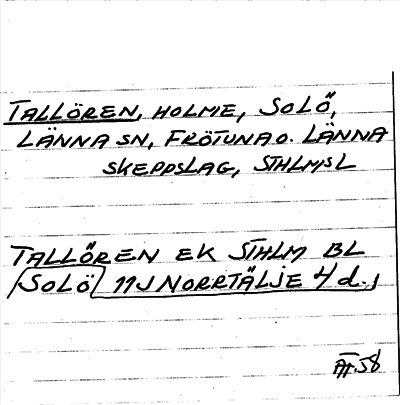 TALLÖREN, HOLME, SOLÖ,
LÄNNA SN, FRÖTUNA O. LÄNNA
SKEPPSLAG, STHLMS L
TALLÖREN EK STHLM BL
SOLÖ 11J NORRTÄLJE 4 d.,